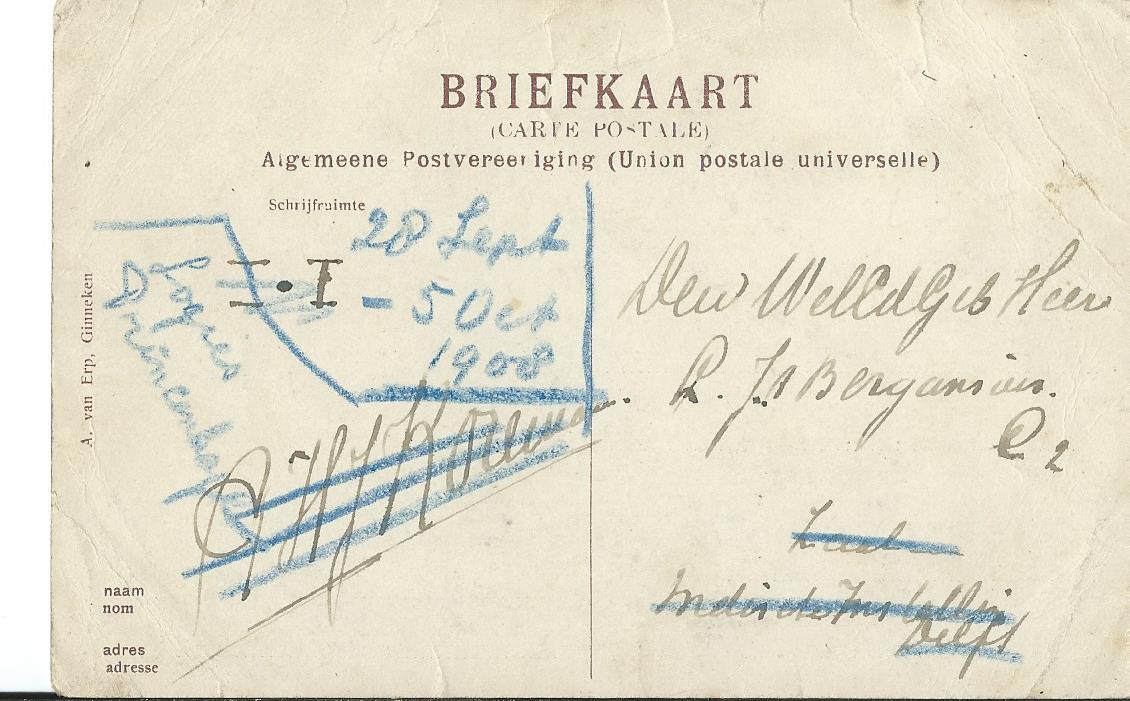 BRIEFKAART
(CARTE POSTALE)
Algemeene Postvereeniging (Union postale universelle)
Schrijfruimte
28 Sept
- 5 Oct
1908
Logies
Princenhage
A. van Erp, Ginneken
Den WelEdGeb Heer
C 2
Indische Instelling
Delft
naam
nom
adres
adresse